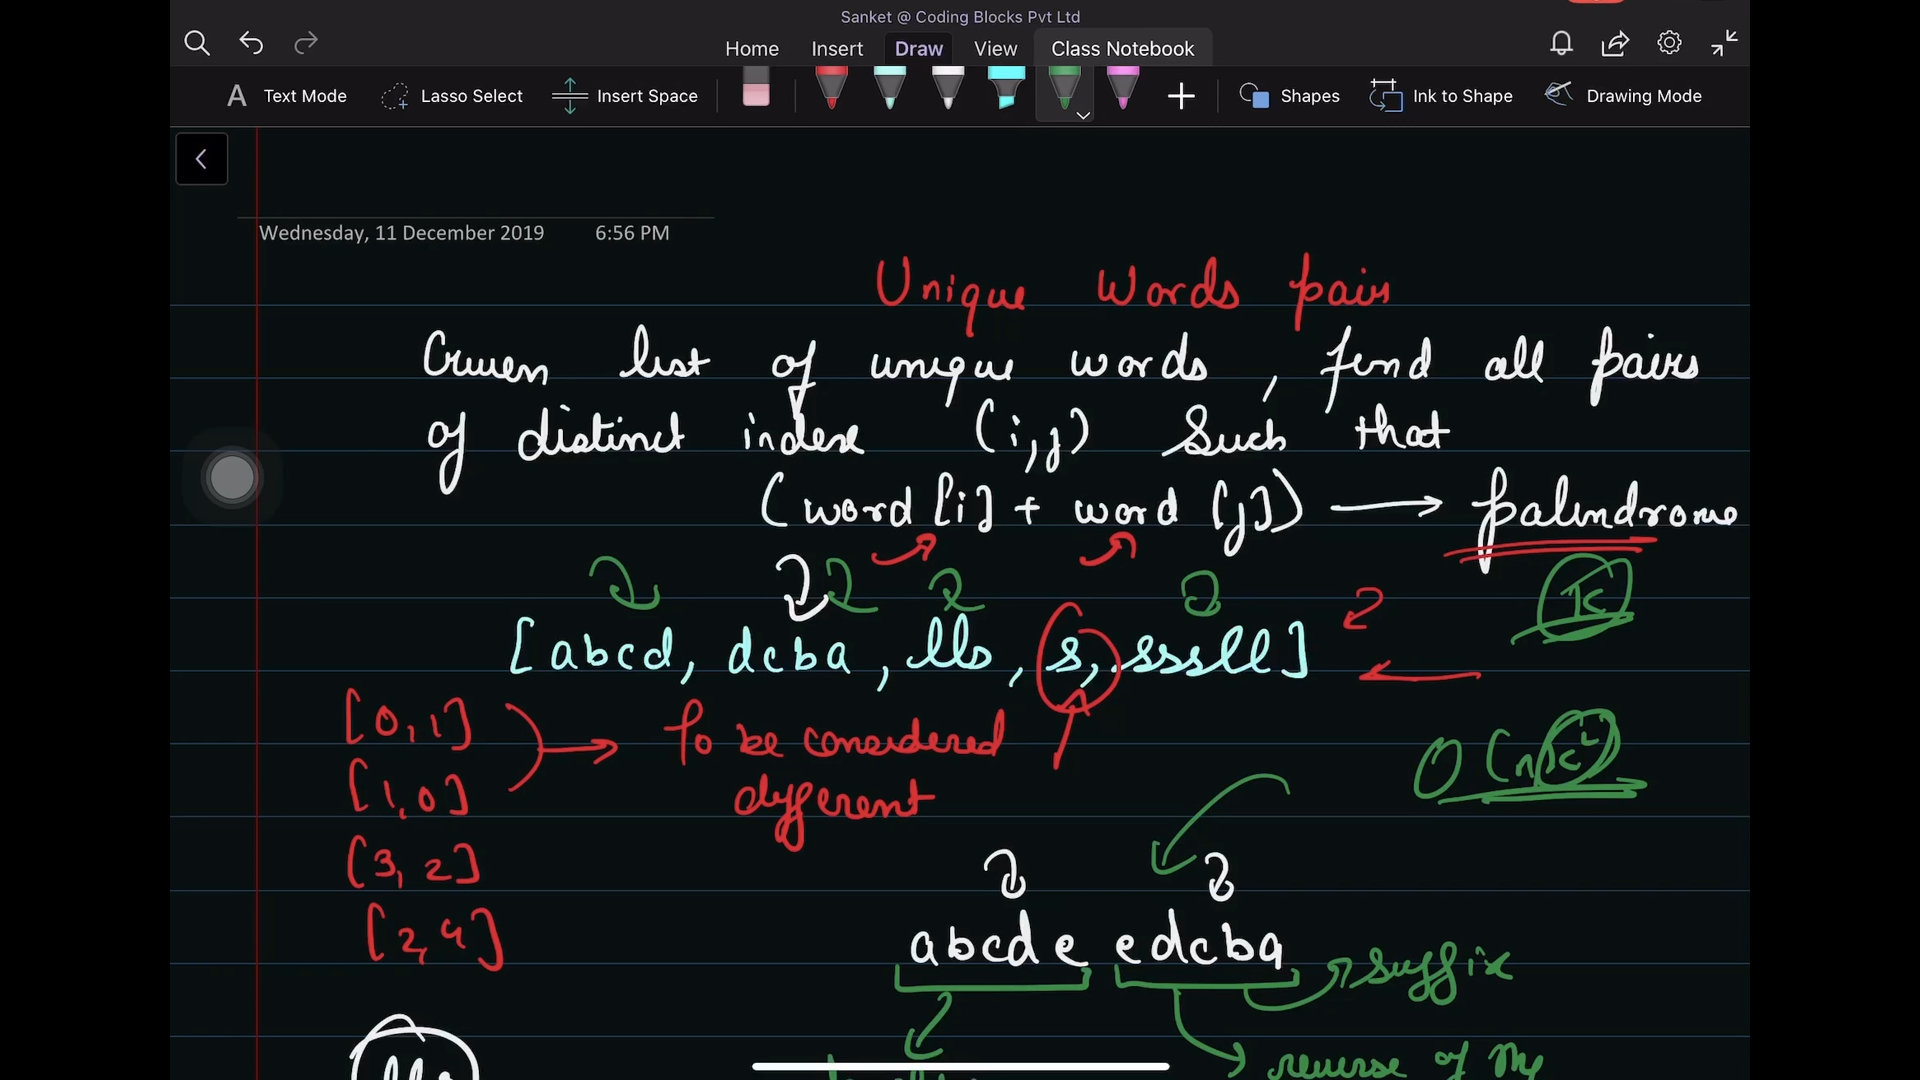 Sanket @ Coding Blocks Pvt Ltd
Home Insert Draw View Class Notebook
A Text Mode Lasso Select Insert Space Shapes Ink to Shape Drawing Mode
Wednesday, 11 December 2019 6:56 PM
Unique Words pairs
Given list of unique words, find all pairs
of distinct index (i,j) Such that
(word[i] + word[j]) → palindrome
K
[abcd, dcba, lls, s, sssll]
[0,1]
→ To be considered
different
[1,0]
O(nk²)
[3,2]
[2,4]
abcde edcba
suffix
reverse of